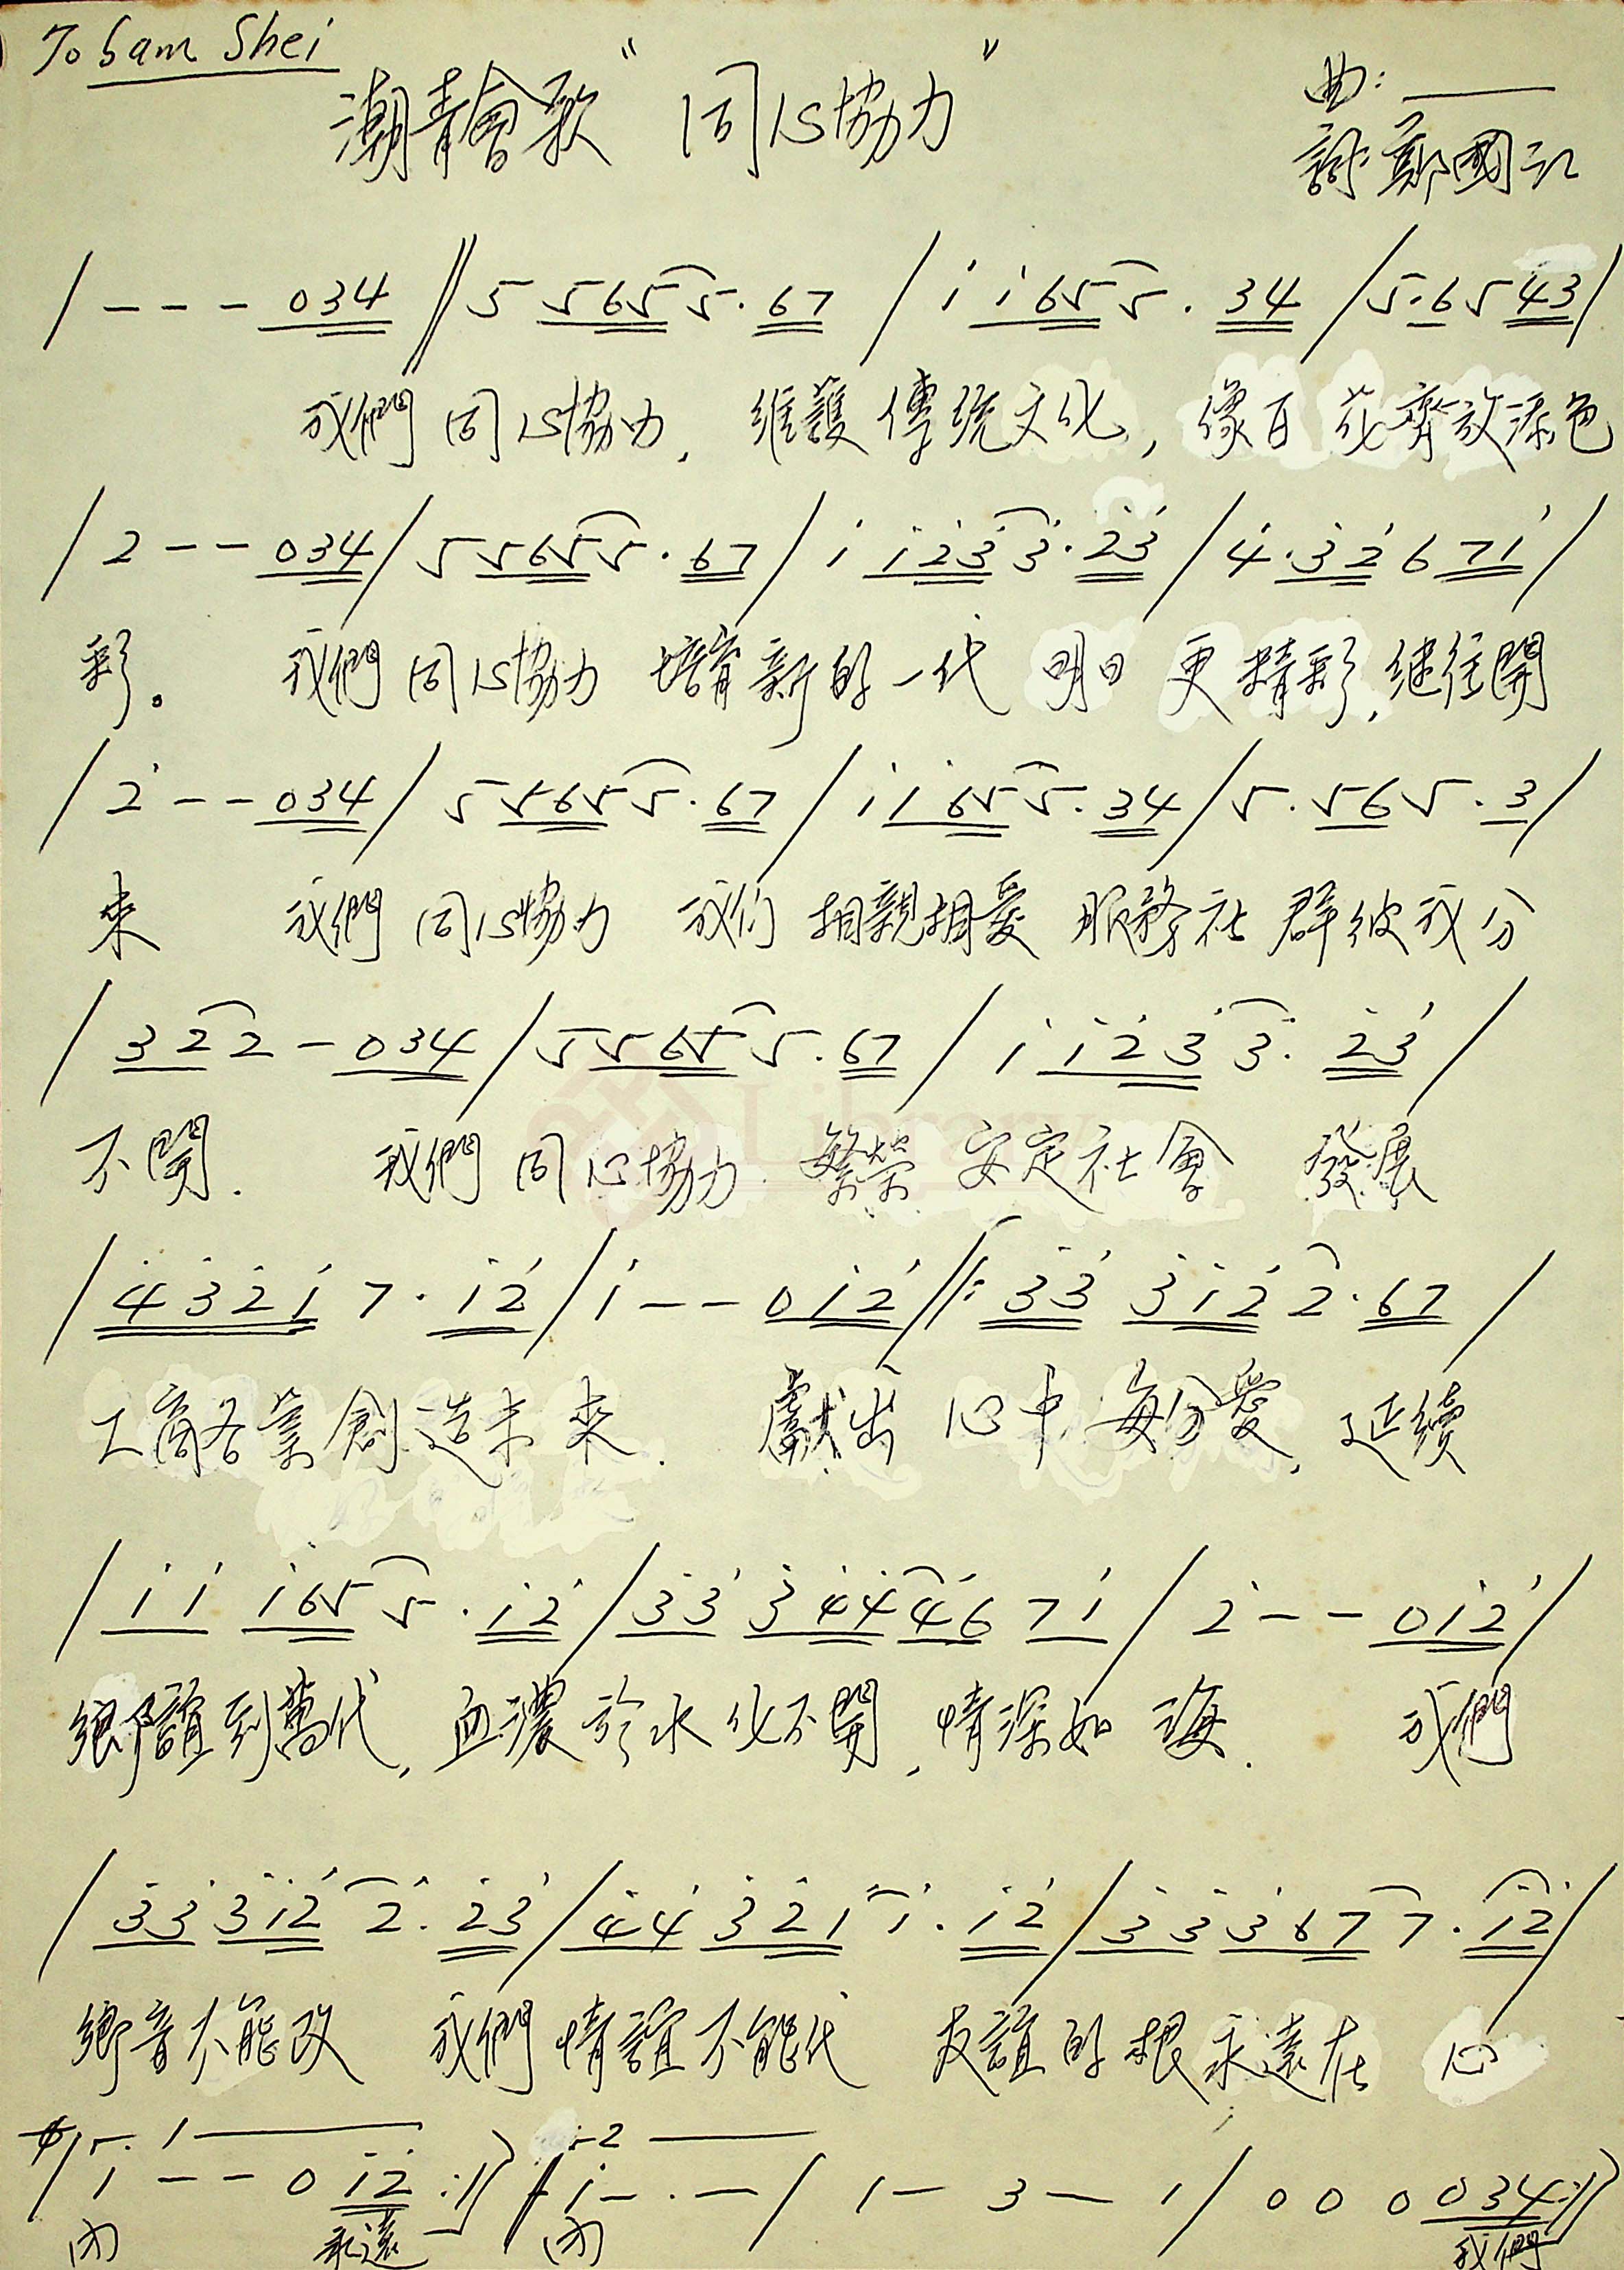 To Sam Shei
潮青會歌 "同心協力"
曲: ———
詞: 鄭國江
/ - - - 0 3 4 // 5 5 6 5 5 · 6 7 / i i 6 5 5 · 3 4 / 5 · 6 5 4 3 /
我們 同心協力, 維護傳統文化, 像百花齊放添色
/ 2 - - 0 3 4 / 5 5 6 5 5 · 6 7 / i i 2̇ 3̇ 3̇ · 2̇ 3̇ / 4̇ · 3̇ 2̇ 6 7 i /
彩。 我們 同心協力 培育新的一代 明日更精彩, 继往開
/ 2̇ - - 0 3 4 / 5 5 6 5 5 · 6 7 / i i 6 5 5 · 3 4 / 5 · 5 6 5 · 3 /
來 我們 同心協力 我们 相親相愛 服務社群彼我分
/ 3 2 2 - 0 3 4 / 5 5 6 5 5 · 6 7 / i i 2̇ 3̇ 3̇ · 2̇ 3̇ /
不開. 我們 同心協力 繁榮安定社會 發展
/ 4̇ 3̇ 2̇ i 7 · i 2̇ / i - - 0 i 2̇ //: 3̇ 3̇ 3̇ i 2̇ 2̇ · 6 7 /
工商各業創造未來. 獻出 心中每分愛, 延續
/ i i i 6 5 5 · i 2̇ / 3̇ 3̇ 3̇ 4̇ 4̇ 4̇ 6 7 i / 2̇ - - 0 i 2̇ /
鄉誼到萬代, 血濃於水化不開, 情深如海. 我們
/ 3̇ 3̇ 3̇ i 2̇ 2̇ · 2̇ 3̇ / 4̇ 4̇ 3̇ 2̇ i i · i 2̇ / 3̇ 3̇ 3̇ 6 7 7 · i 2̇ /
鄉音不能改 我們情誼不能代 友誼的根永遠在 心
1 ——— 2 ———
/ i - - 0 i 2̇ :// i - · - / 1 - 3 - 1 / 0 0 0 0 3 4 ://
內 永遠 內 我們
Library